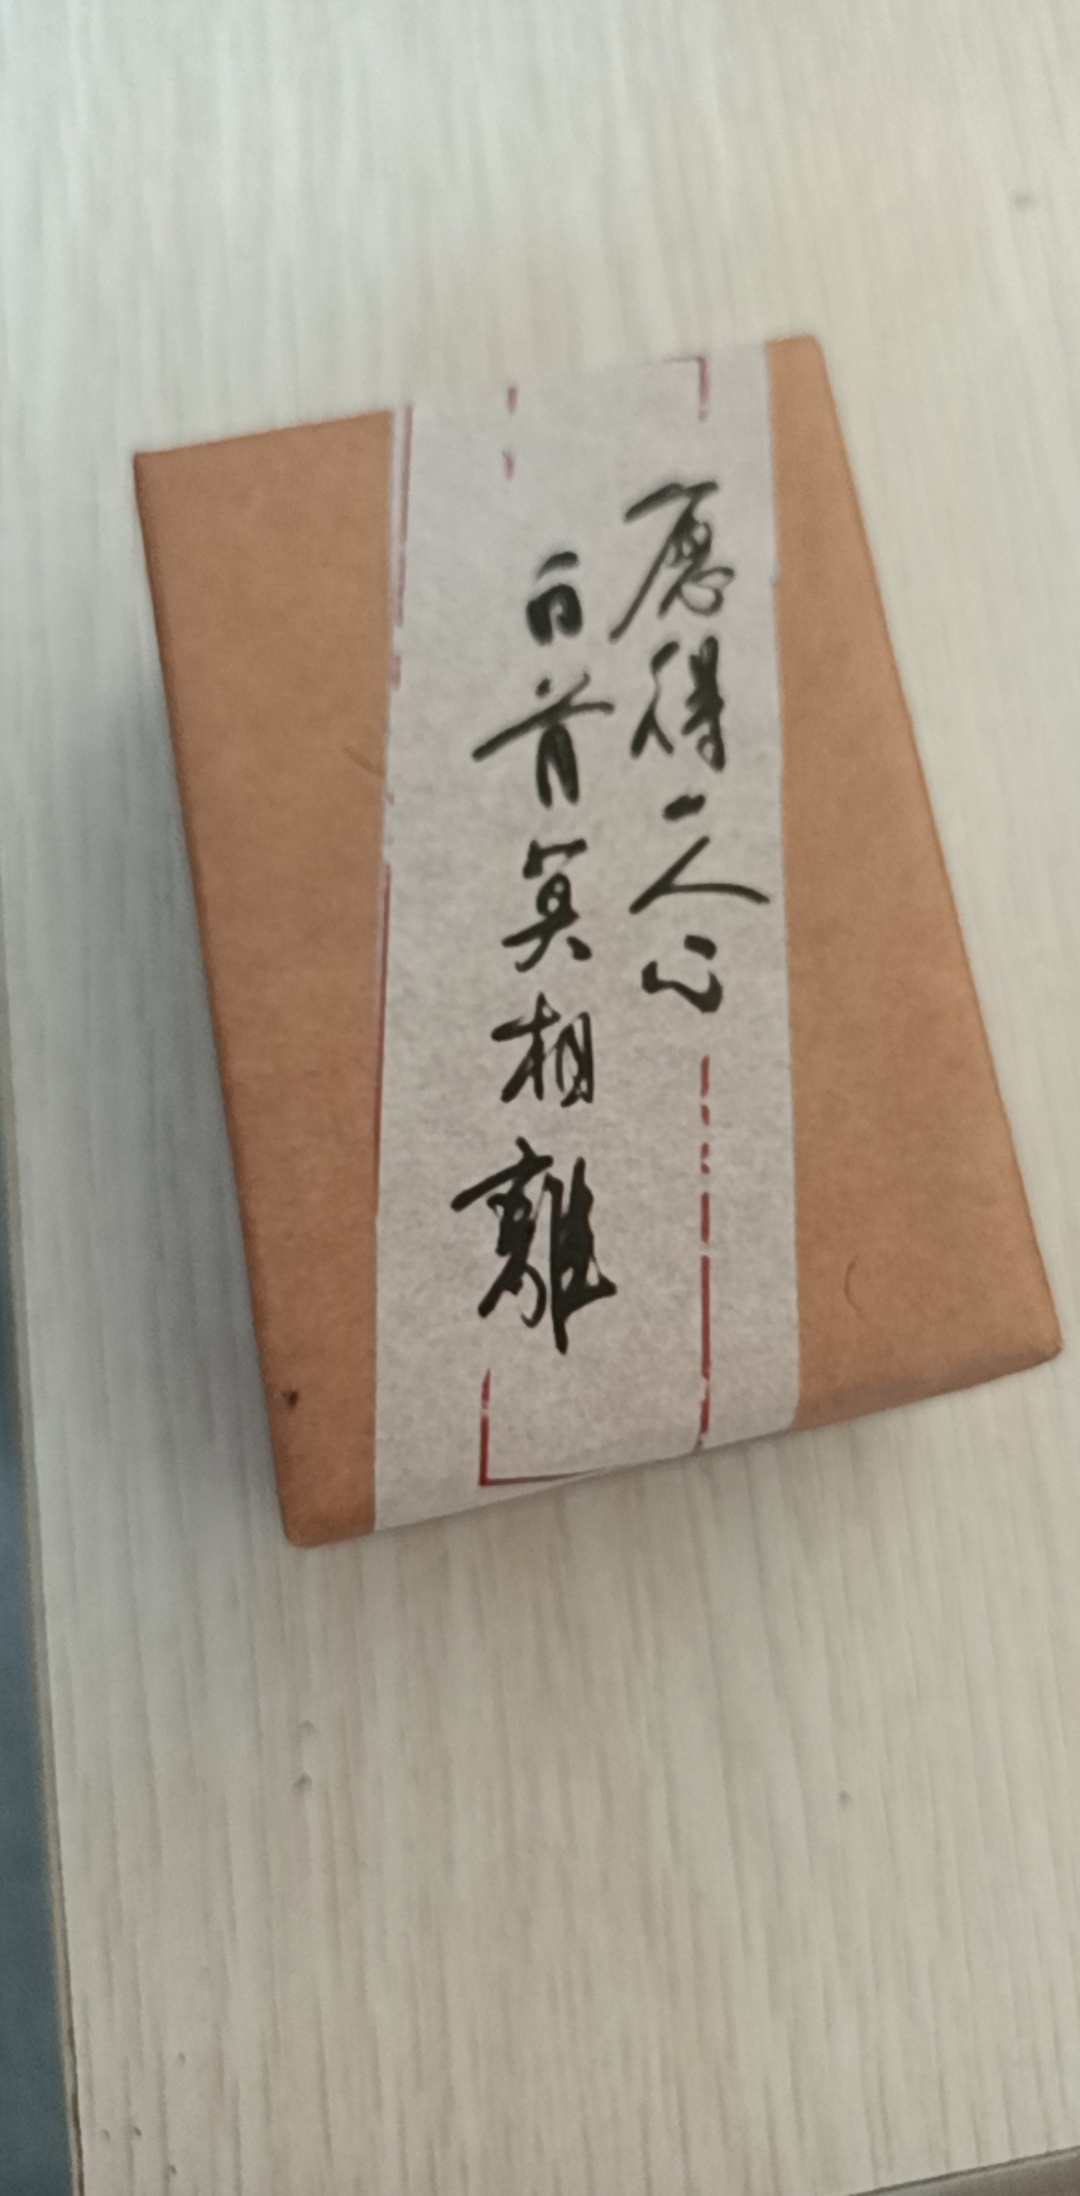 愿得一人心
白首莫相離